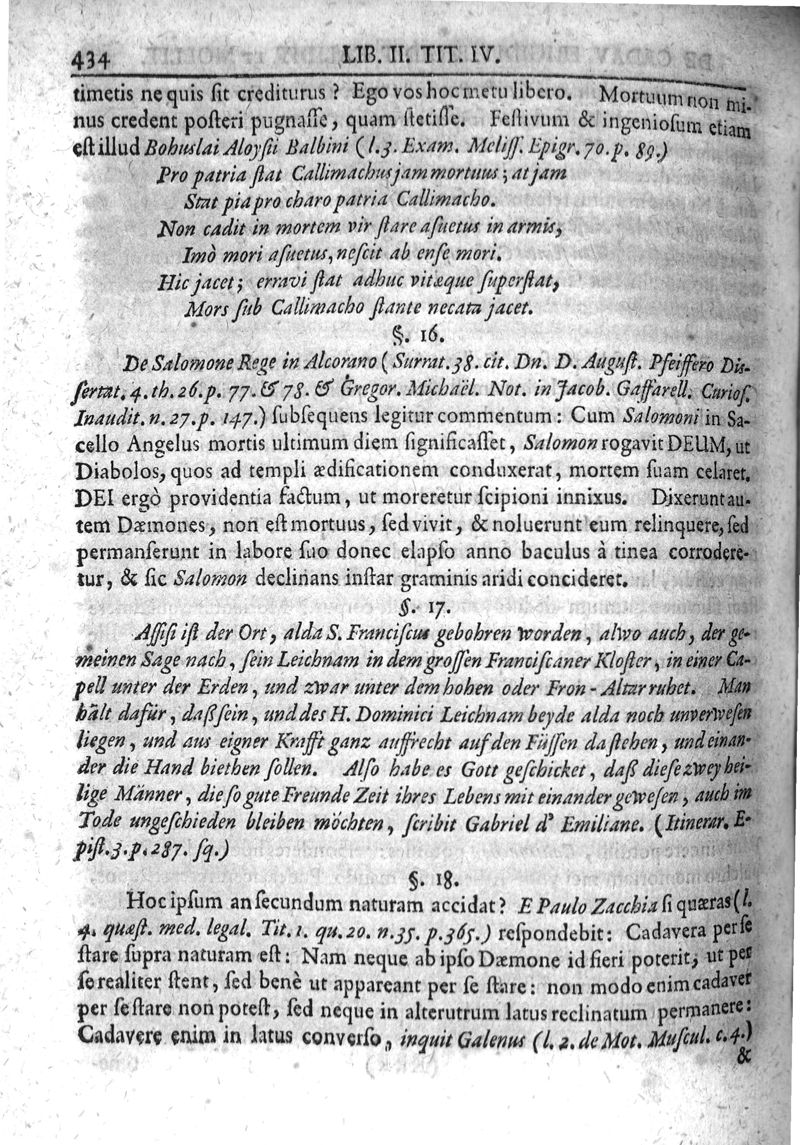 434 LIB. II. TIT. IV.
timetis ne quis ſit crediturus? Ego vos hoc metu libero. Mortuum non mi-
nus credent poſteri pugnaſſe, quam ſtetiſſe. Feſtivum & ingenioſum etiam
eſt illud Bohuslai Aloyſii Balbini (l. 3. Exam. Meliſſ. Epigr. 70. p. 89.)
Pro patria ſtat Callimachus jam mortuus; at jam
Stat pia pro charo patria Callimacho.
Non cadit in mortem vir ſtare aſuetus in armis,
Imò mori aſuetus, neſcit ab enſe mori.
Hic jacet; erravi ſtat adhuc vitæque ſuperſtat,
Mors ſub Callimacho ſtante necata jacet.
§. 16.
De Salomone Rege in Alcorano (Surrat. 38. cit. Dn. D. Auguſt. Pfeiffero Diſ-
ſertat. 4. th. 26. p. 77. & 78. & Gregor. Michaël. Not. in Jacob. Gaffarell. Curioſ.
Inaudit. n. 27. p. 147.) ſubſequens legitur commentum: Cum Salomoni in Sa-
cello Angelus mortis ultimum diem ſignificaſſet, Salomon rogavit DEUM, ut
Diabolos, quos ad templi ædificationem conduxerat, mortem ſuam celaret.
DEI ergò providentia factum, ut moreretur ſcipioni innixus. Dixerunt au-
tem Dæmones, non eſt mortuus, ſed vivit, & noluerunt eum relinquere, ſed
permanſerunt in labore ſuo donec elapſo anno baculus à tinea corrodere-
tur, & ſic Salomon declinans inſtar graminis aridi concideret.
§. 17.
Aſſiſi iſt der Ort, alda S. Franciſcus gebohren worden, alwo auch, der ge-
meinen Sage nach, ſein Leichnam in dem groſſen Franciſcaner Kloſter, in einer Ca-
pell unter der Erden, und zwar unter dem hohen oder Fron-Altar ruhet. Man
hält dafür, daß ſein, und des H. Dominici Leichnam beyde alda noch unverweſen
liegen, und aus eigner Krafft ganz auffrecht auf den Füſſen da ſtehen, und einan-
der die Hand biethen ſollen. Alſo habe es Gott geſchicket, daß dieſe zwey hei-
lige Männer, die ſo gute Freunde Zeit ihres Lebens mit einander geweſen, auch im
Tode ungeſchieden bleiben möchten, ſcribit Gabriel d' Emiliane. (Itinerar. E-
piſt. 3. p. 287. ſq.)
§. 18.
Hoc ipſum an ſecundum naturam accidat? E Paulo Zacchia ſi quæras (l.
4. quæſt. med. legal. Tit. 1. qu. 20. n. 35. p. 365.) reſpondebit: Cadavera per ſe
ſtare ſupra naturam eſt: Nam neque ab ipſo Dæmone id fieri poterit, ut per
ſe realiter ſtent, ſed benè ut appareant per ſe ſtare: non modo enim cadaver
per ſe ſtare non poteſt, ſed neque in alterutrum latus reclinatum permanere:
Cadavere enim in latus converſo, inquit Galenus (l. 2. de Mot. Muſcul. c. 4.)
&